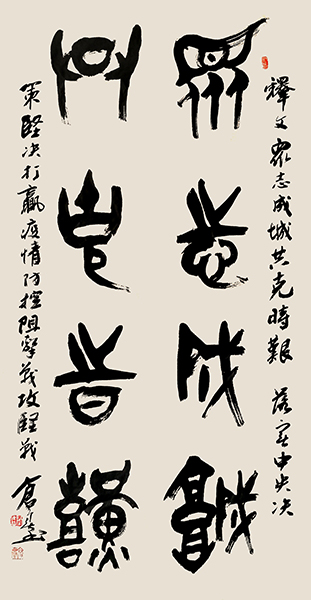 釋文 衆志成城共克時艱 落实中央决
衆志成城
共克時艱
策堅决打贏疫情防控阻擊戰攻堅戰